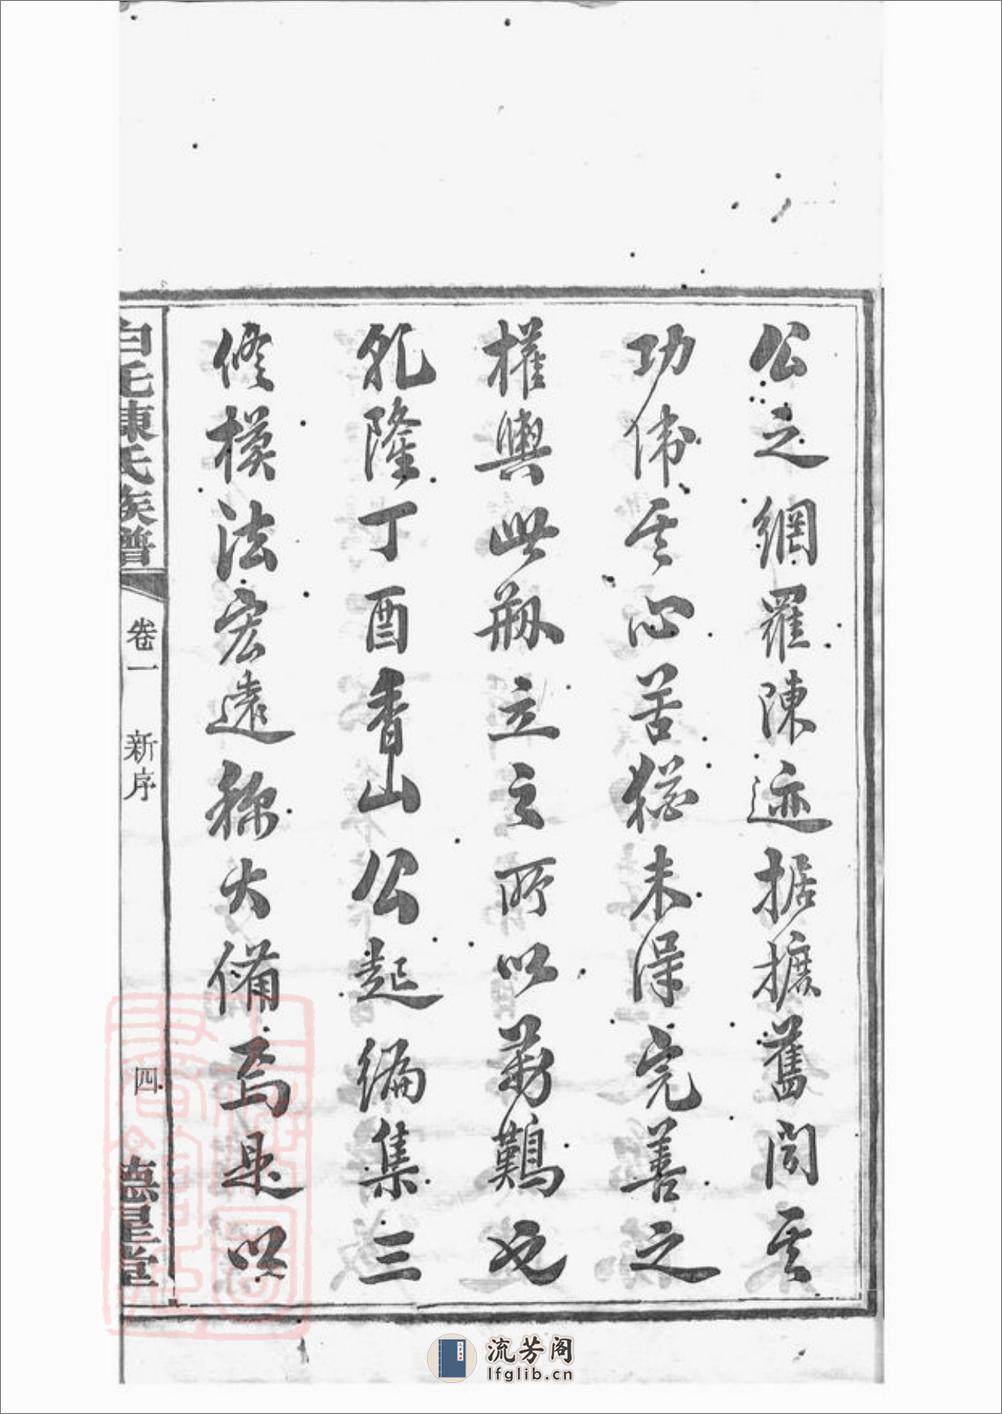 公之網羅陳迹据摭舊聞其
功偉其心苦猶未得完善之
權輿此刱立之所以為難也
乾隆丁酉香山公起編集三
修模法宏遠称大備焉是以
白毛陳氏族譜
卷一 新序
四
德星堂
流芳阁
lfglib.cn